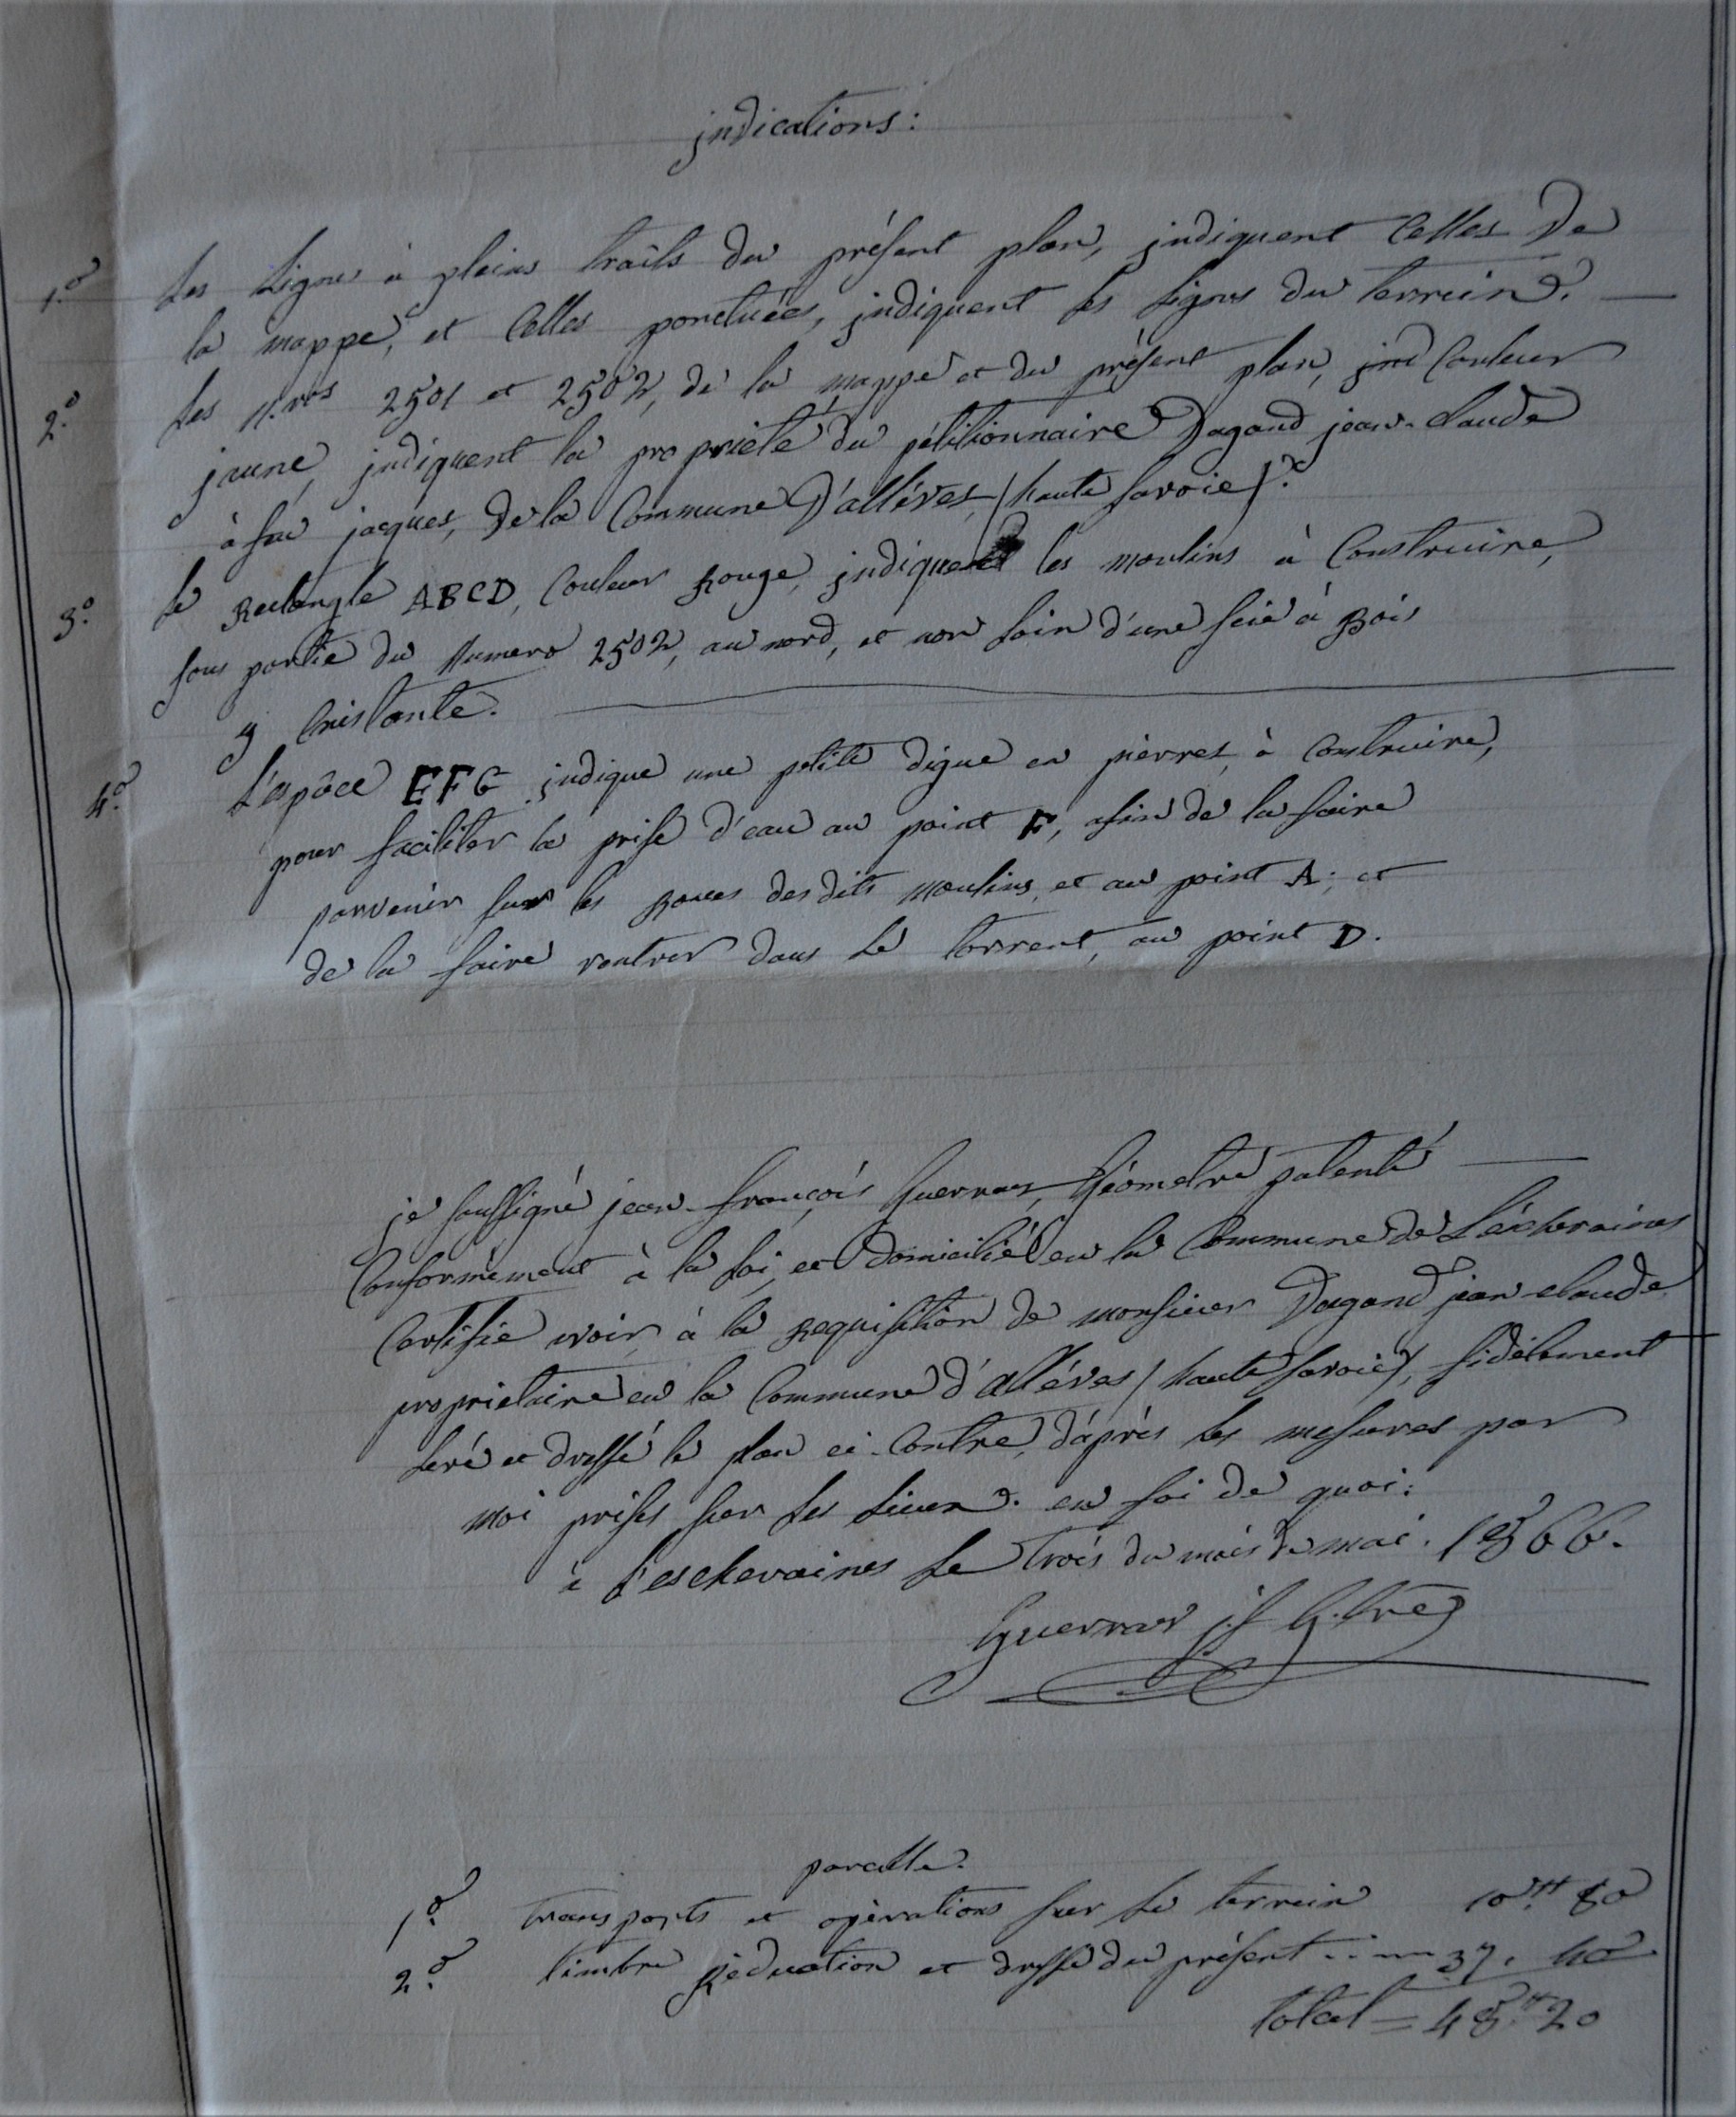 indications:
1.° Les Lignes à pleins traits du présent plan, indiquent Celles De
la mappe, et Celles ponctuées, indiquent les Lignes du terrein.
2.° Les n.ros 2501 et 2502, de la mappe et du présent plan, Couleur
jaune, indiquent la propriété du pétitionnaire Dagand jean-Claude
à feu jacques, De la Commune D'allèves, (haute Savoie).
3.° Le Rectangle ABCD, Couleur Rouge, indique les moulins à Construire,
sous partie du Numero 2502, au nord, et non loin d'une scie à Bois
y existante.
4.° L'espâce EFG indique une petite digue en pierres, à Construire,
pour faciliter la prise d'eau au point F, afin de la faire
parvenir sur les Roues des dits moulins, et au point A; et
de la faire rentrer dans le torrent, au point D.
je soussigné jean-françois Guerraz, Géometre patenté
Conformément à la loi, et Domicilié en la Commune de Lécheraines
Certifie avoir, à la Requisition de monsieur Dagand jean-claude
proprietaire en la Commune d'allèves (haute Savoie), fidèlement
levé et dressé le plan ci-Contre, d'après les mesures par
moi prises sur les Lieux. en foi de quoi:
à Lescheraines Le trois du mois de mai. 1866.
Guerraz j.f G.tre
parcelle.
1.° transports et opèrations sur le terrein 10.tt 80
2.° timbre Rèduction et dressé du présent 37. 40
total = 48.tt 20